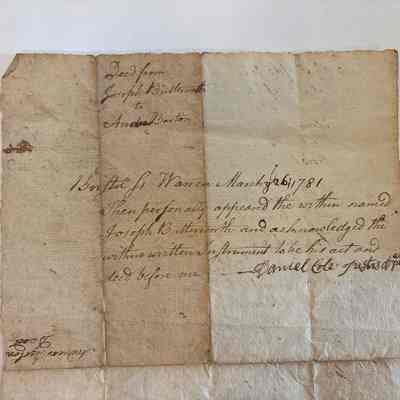 Deed from
Joseph Butterworth
to
Barton
Bristol Ss Warren March 26, 1781
Then personally appeard the within named
Joseph Butterworth and acknowledged the
within written Instrument to be his act and
deed before me
Daniel Cole Justice